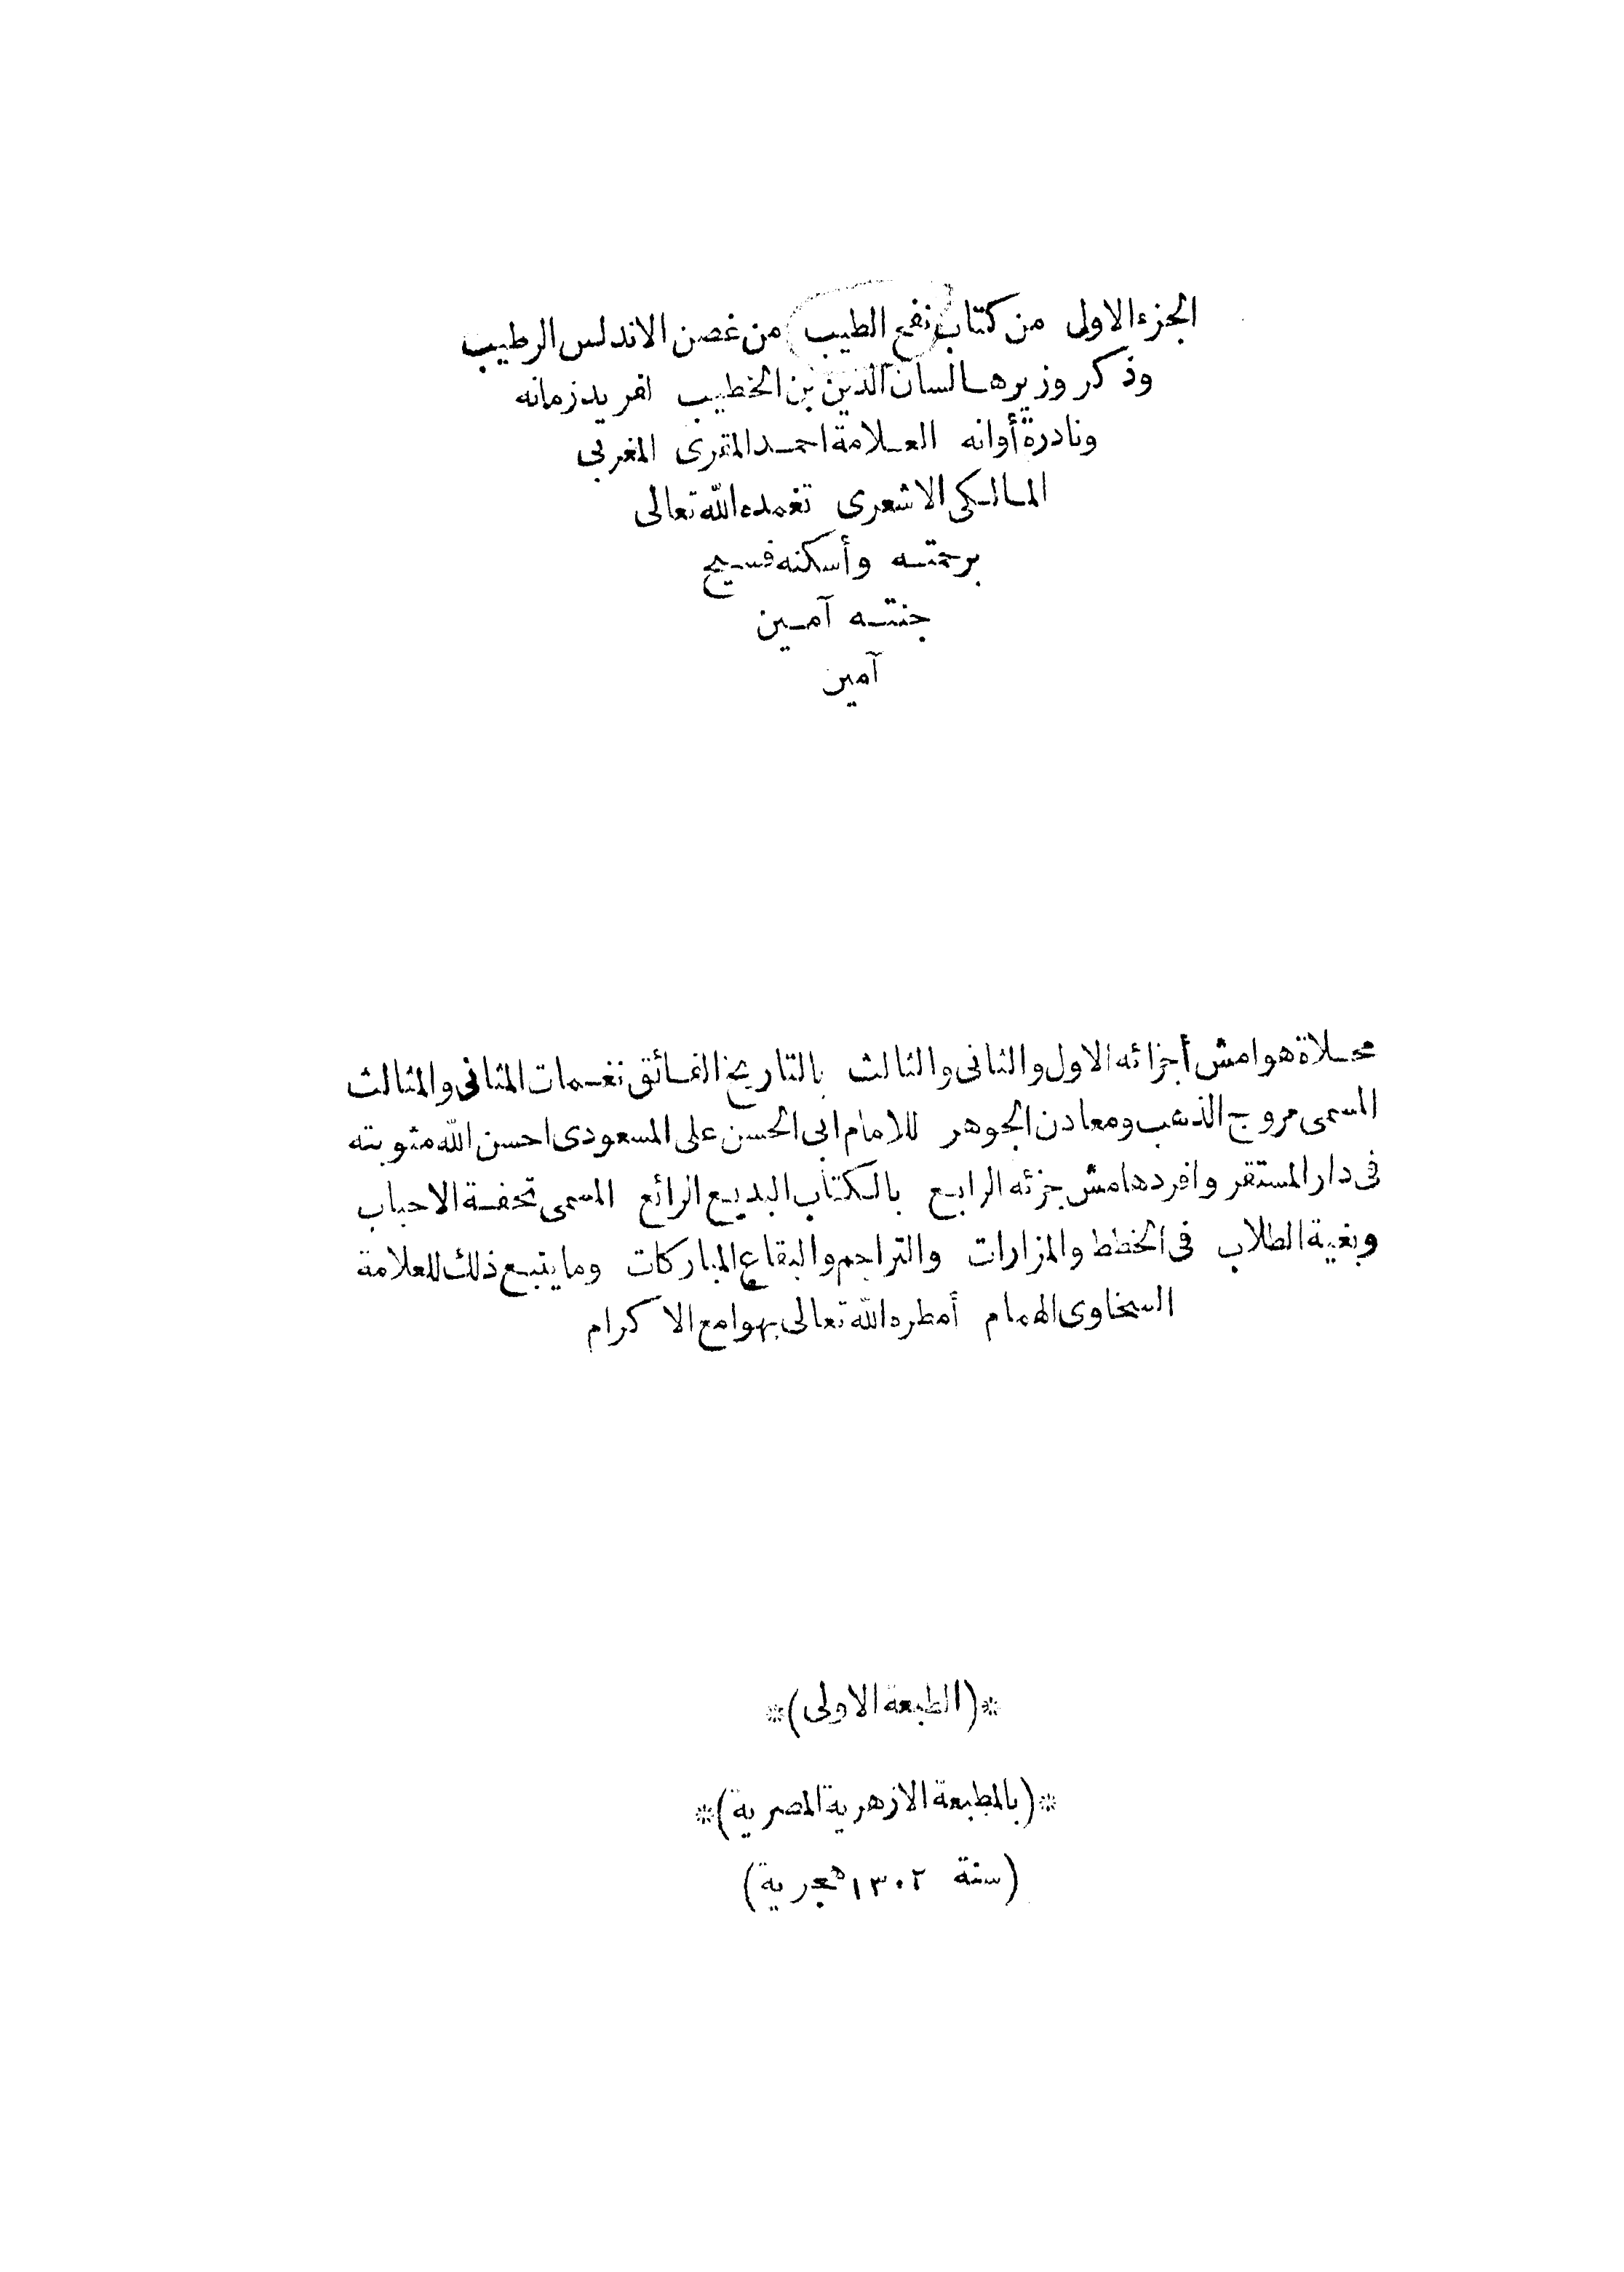 الجزء الاول من كتاب نفح الطيب من غصن الاندلس الرطيب
وذكر وزيرها لسان الدين بن الخطيب لفريد زمانه
ونادرة أوانه العلامة احمد المقرى المغربى
المالكى الاشعرى تغمده الله تعالى
برحمته وأسكنه فسيح
جنته آمين
آمين
محلاة هوامش أجزائه الاول والثانى والثالث بالتاريخ الفائق نغمات المثانى والمثالث
المسمى مروج الذهب ومعادن الجوهر للامام ابى الحسن على المسعودى احسن الله مثوبته
فى دار المستقر وافرد هامش جزئه الرابع بالكتاب البديع الرائع المسمى تحفة الاحباب
وبغية الطلاب فى الخطط والمزارات والتراجم والبقاع المباركات وما يتبع ذلك للعلامة
السخاوى الهمام أمطره الله تعالى بهوامع الاكرام
*(الطبعة الاولى)*
*(بالمطبعة الازهرية المصرية)*
(سنة ١٣٠٢ هجرية)